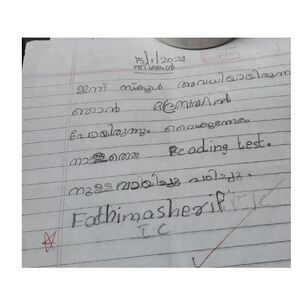 15/1/2024
തിങ്കൾ
ഇന്ന് സ്കൂൾ അവധിയായിരുന്നു
ഞാൻ മദ്രസയിൽ
പോയിരുന്നു. വൈകുന്നേരം
നാളത്തെ Reading test.
നുള്ള വായിച്ചു പഠിച്ചു.
Fathimasherif
I C